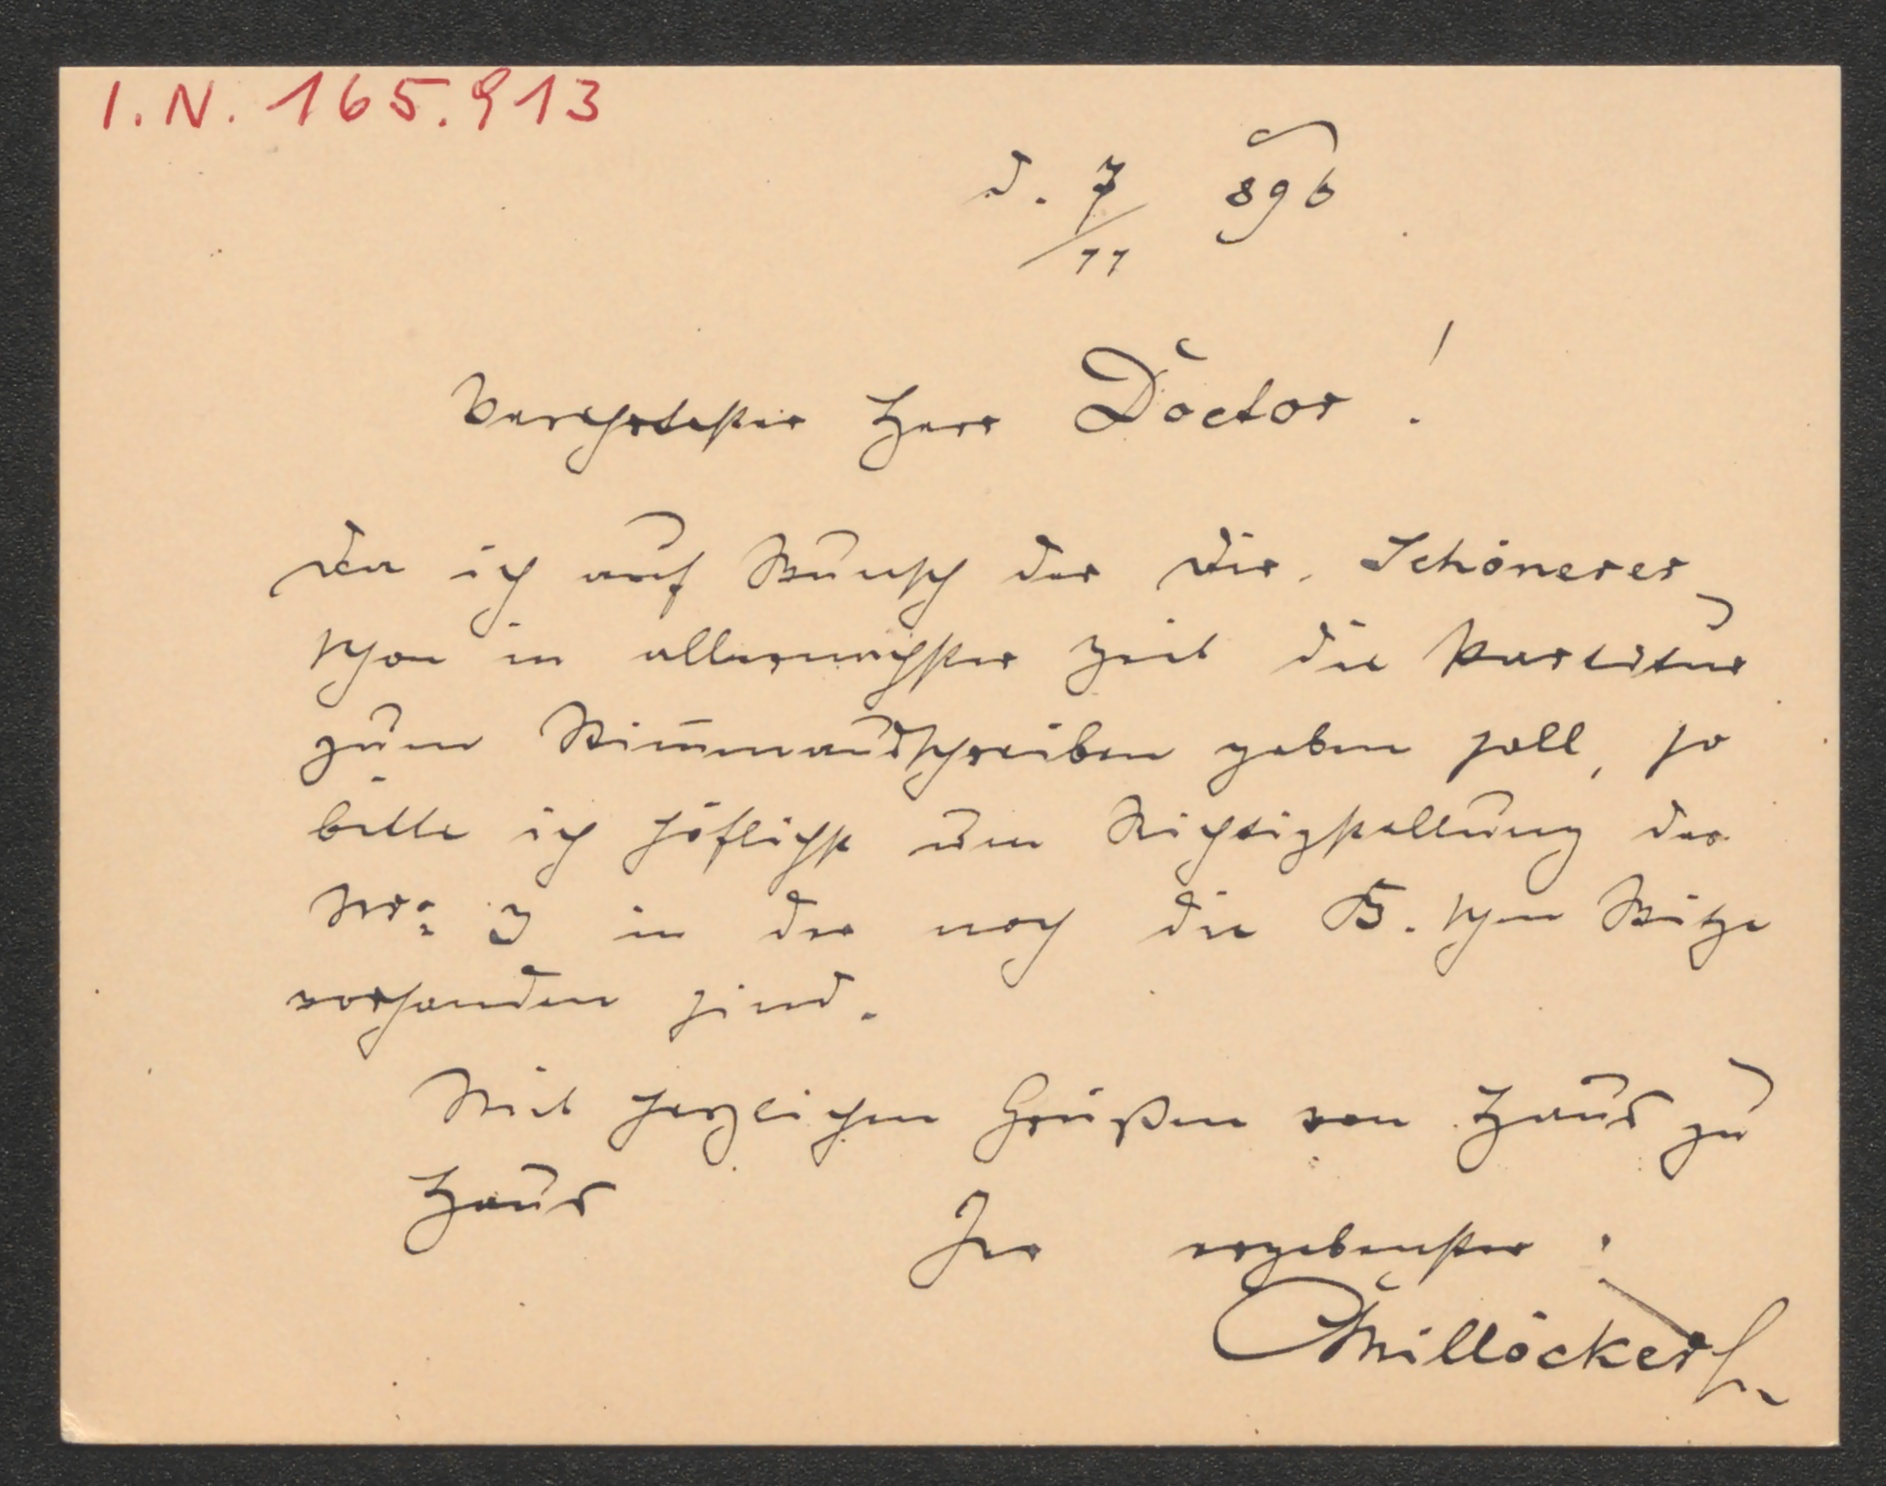 I.N. 165.913
d. 7/11 896
Verehrtester Herr Doctor!
Da ich auf Wunsch der Dir. Schönerer
schon in allernächster Zeit die Partitur
zum Stimmausschreiben geben soll, so
bitte ich höflichst um Richtigstellung der
Nro: 3 in der noch die B. schen Witze
vorhanden sind.
Mit herzlichen Grüßen von Haus zu
Haus
Ihr ergebenster:
CMillöcker